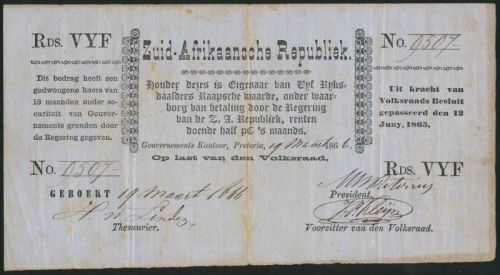 RDS. VYF
Zuid-Afrikaansche Republiek.
No. 0507
Dit bedrag heeft een
gedwongene koers van
18 maanden onder se-
curiteit van Gouver-
nements gronden door
de Regering gegeven.
Houder dezes is Eigenaar van Vyf Ryks-
daalders Kaapsche waarde, onder waar-
borg van betaling door de Regering
van de Z. A. Republiek, renten
doende half pC's maands.
Gouvernements Kantoor, Pretoria, 19 Maart 1866.
Op last van den Volksraad.
Uit kracht van
Volksraads Besluit
gepasseerd den 12
Juny, 1865.
No. 0507
RDS. VYF
GEBOEKT 19 Maart 1866
Thesaurier.
President.
Voorzitter van den Volksraad.